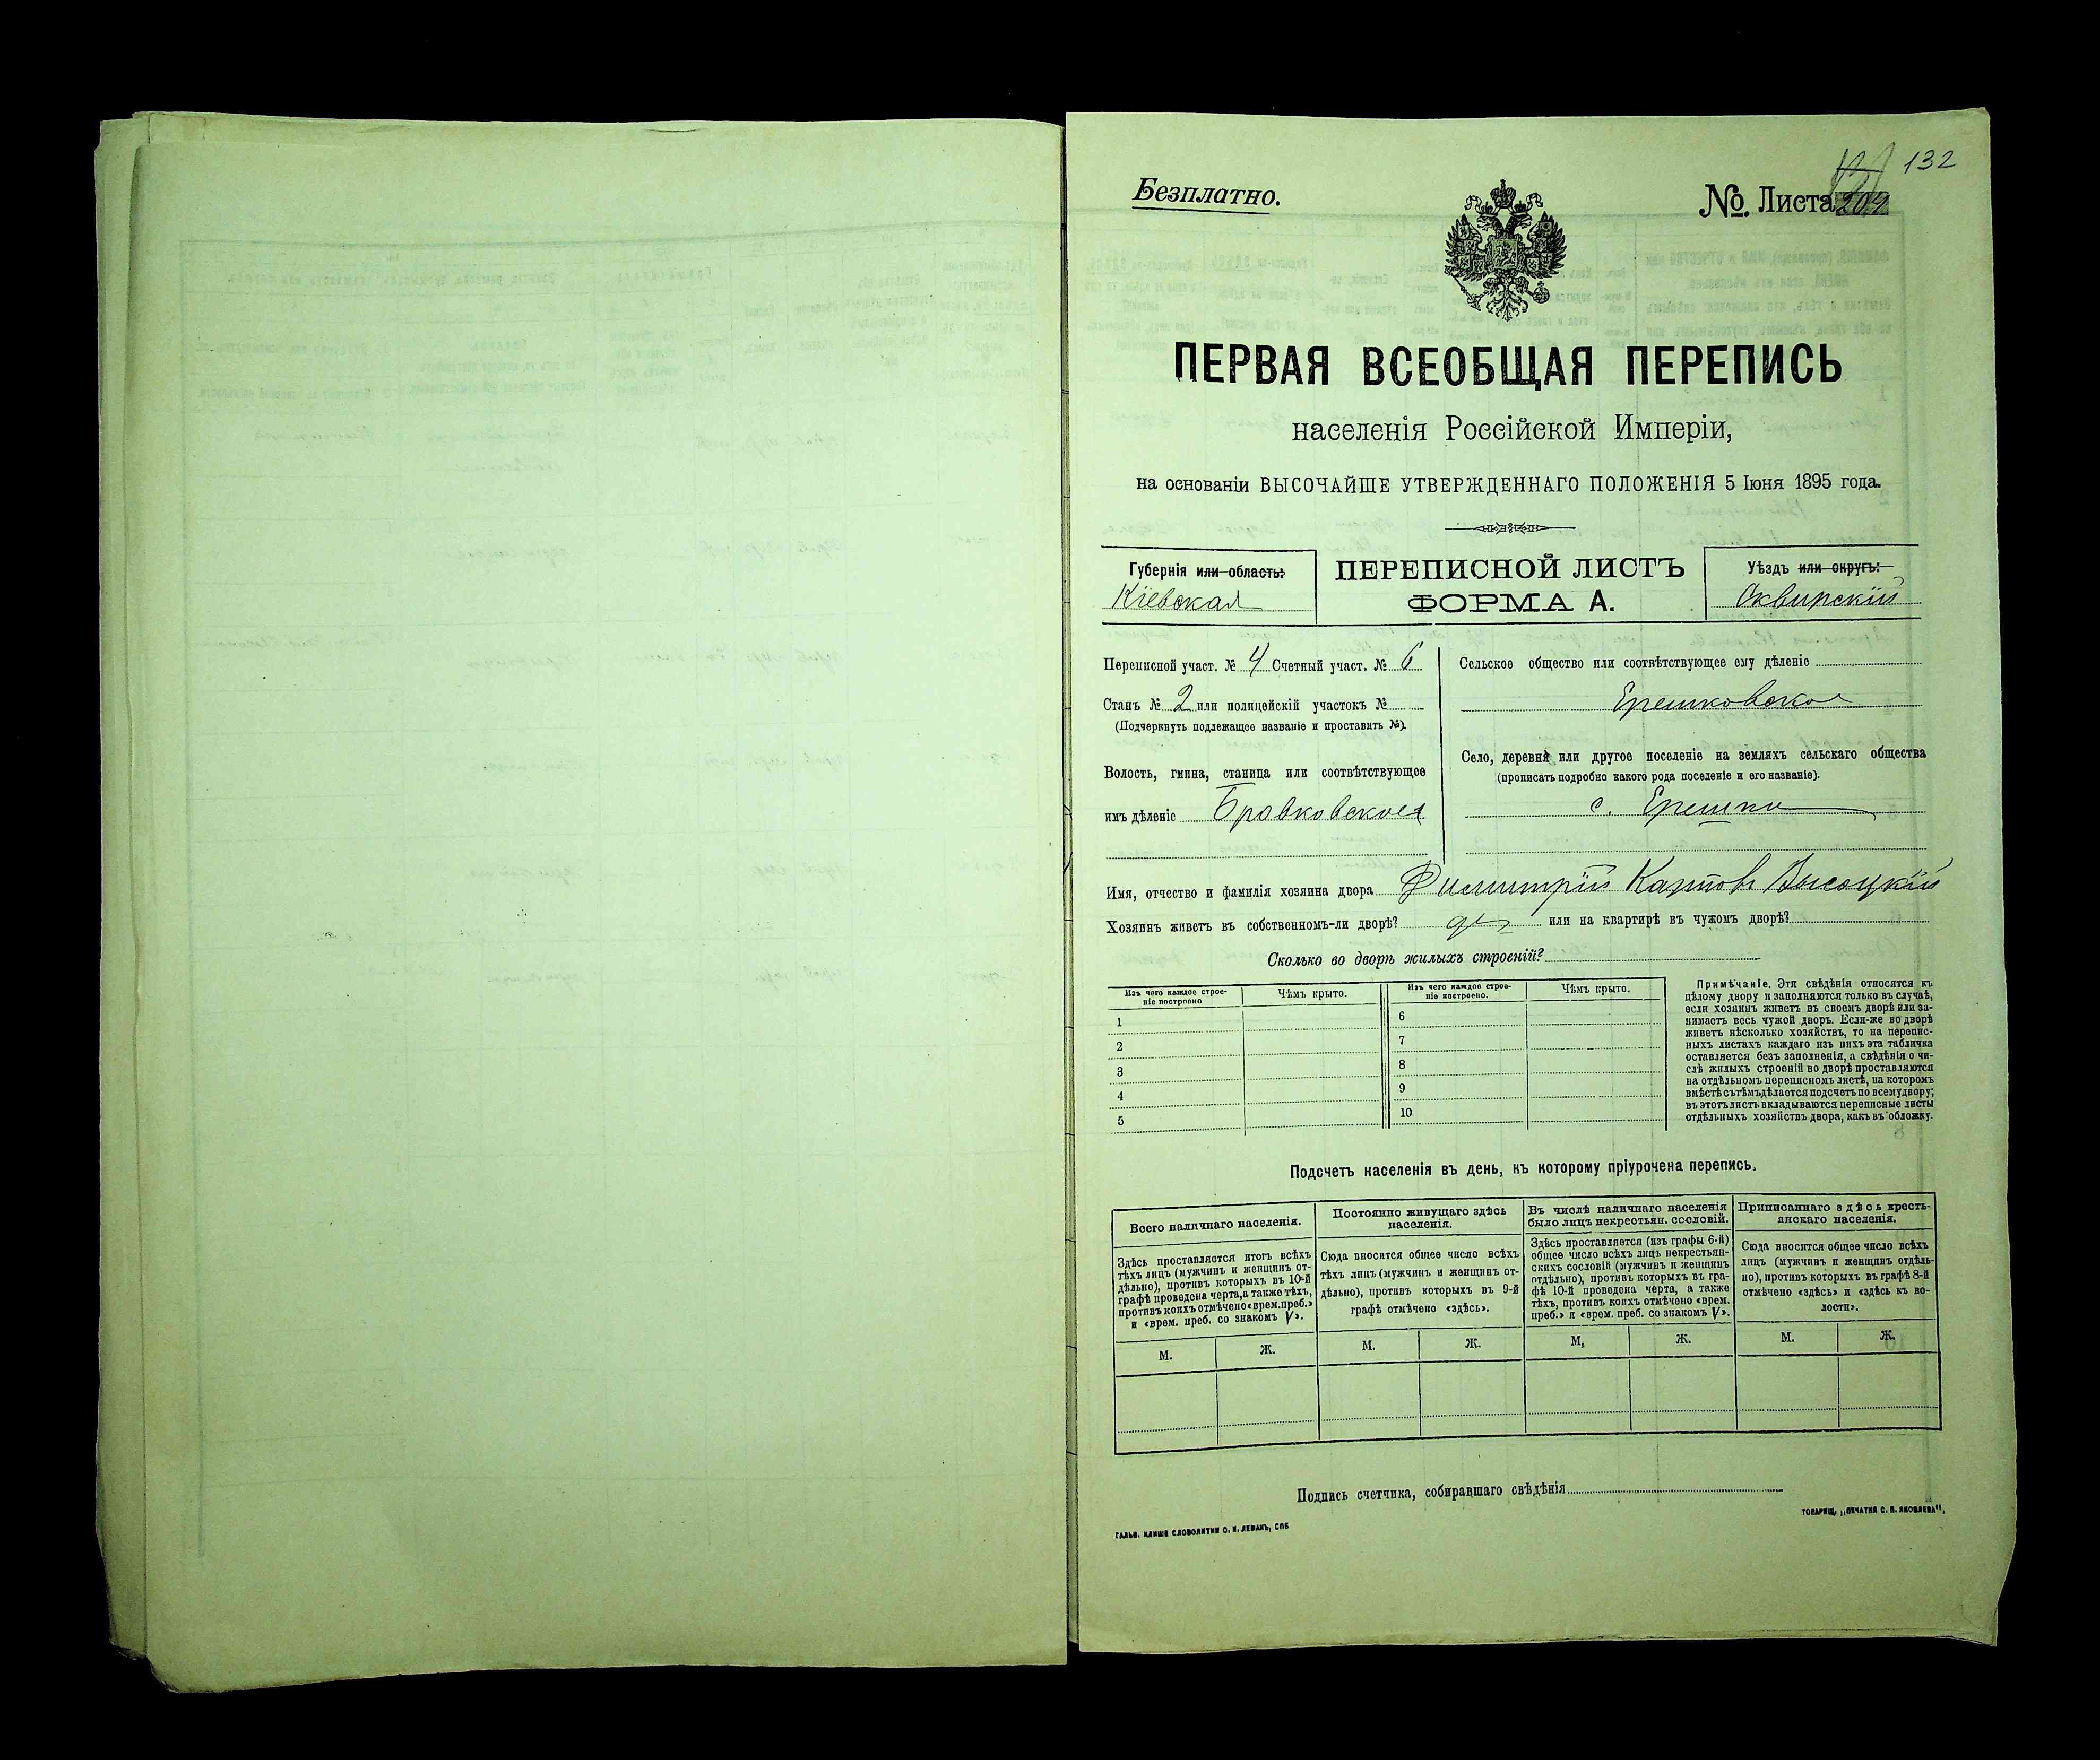 132
Безплатно.
№. Листа 204
ПЕРВАЯ ВСЕОБЩАЯ ПЕРЕПИСЬ
населенія Россійской Имперіи,
на основаніи ВЫСОЧАЙШЕ УТВЕРЖДЕННАГО ПОЛОЖЕНІЯ 5 Іюня 1895 года.
Губернія или область:
Кіевская
ПЕРЕПИСНОЙ ЛИСТЪ
ФОРМА А.
Уѣздъ или округъ:
Сквирскій
Переписной участ. № 4 Счетный участ. № 6
Станъ № 2 или полицейскій участокъ №
(Подчеркнуть подлежащее названіе и проставить №).
Волость, гмина, станица или соотвѣтствующее
имъ дѣленіе Бровковская
Сельское общество или соотвѣтствующее ему дѣленіе
Ерешковское
Село, деревня или другое поселеніе на земляхъ сельскаго общества
(прописать подробно какого рода поселеніе и его названіе).
с. Ерешки
Имя, отчество и фамилія хозяина двора Димитрій Карпов Высоцкій
Хозяинъ живетъ въ собственномъ-ли дворѣ? да или на квартирѣ въ чужомъ дворѣ?
Сколько во дворѣ жилыхъ строеній?
Изъ чего каждое строе-
ніе построено
Чѣмъ крыто.
1
2
3
4
5
Изъ чего каждое строе-
ніе построено.
Чѣмъ крыто.
6
7
8
9
10
Примѣчаніе. Эти свѣдѣнія относятся къ
цѣлому двору и заполняются только въ случаѣ,
если хозяинъ живетъ въ своемъ дворѣ или за-
нимаетъ весь чужой дворъ. Если-же во дворѣ
живетъ нѣсколько хозяйствъ, то на перепис-
ныхъ листахъ каждаго изъ нихъ эта табличка
оставляется безъ заполненія, а свѣдѣнія о чи-
слѣ жилыхъ строеній во дворѣ проставляются
на отдѣльномъ переписномъ листѣ, на которомъ
вмѣстѣ съ тѣмъ дѣлается подсчетъ по всему двору;
въ этотъ листъ вкладываются переписные листы
отдѣльныхъ хозяйствъ двора, какъ въ обложку.
Подсчетъ населенія въ день, къ которому пріурочена перепись.
Всего наличнаго населенія.
Здѣсь проставляется итогъ всѣхъ
тѣхъ лицъ (мужчинъ и женщинъ от-
дѣльно), противъ которыхъ въ 10-й
графѣ проведена черта, а также тѣхъ,
противъ коихъ отмѣчено «врем. преб.»
и «врем. преб. со знакомъ V».
М. Ж.
Постоянно живущаго здѣсь
населенія.
Сюда вносится общее число всѣхъ
тѣхъ лицъ (мужчинъ и женщинъ от-
дѣльно), противъ которыхъ въ 9-й
графѣ отмѣчено «здѣсь».
М. Ж.
Въ числѣ наличнаго населенія
было лицъ некрестьян. сословій.
Здѣсь проставляется (изъ графы 6-й)
общее число всѣхъ лицъ некрестьян-
скихъ сословій (мужчинъ и женщинъ
отдѣльно), противъ которыхъ въ гра-
фѣ 10-й проведена черта, а также
тѣхъ, противъ коихъ отмѣчено «врем.
преб.» и «врем. преб. со знакомъ V».
М, Ж.
Приписаннаго здѣсь кресть-
янскаго населенія.
Сюда вносится общее число всѣхъ
лицъ (мужчинъ и женщинъ отдѣль-
но), противъ которыхъ въ графѣ 8-й
отмѣчено «здѣсь» и «здѣсь къ во-
лости».
М. Ж.
Подпись счетчика, собиравшаго свѣдѣнія
ГАЛЬВ. КЛИШЕ СЛОВОЛИТНИ О. И. ЛЕМАНЪ, СПБ
ТОВАРИЩ. „ПЕЧАТНЯ С. П. ЯКОВЛЕВА",